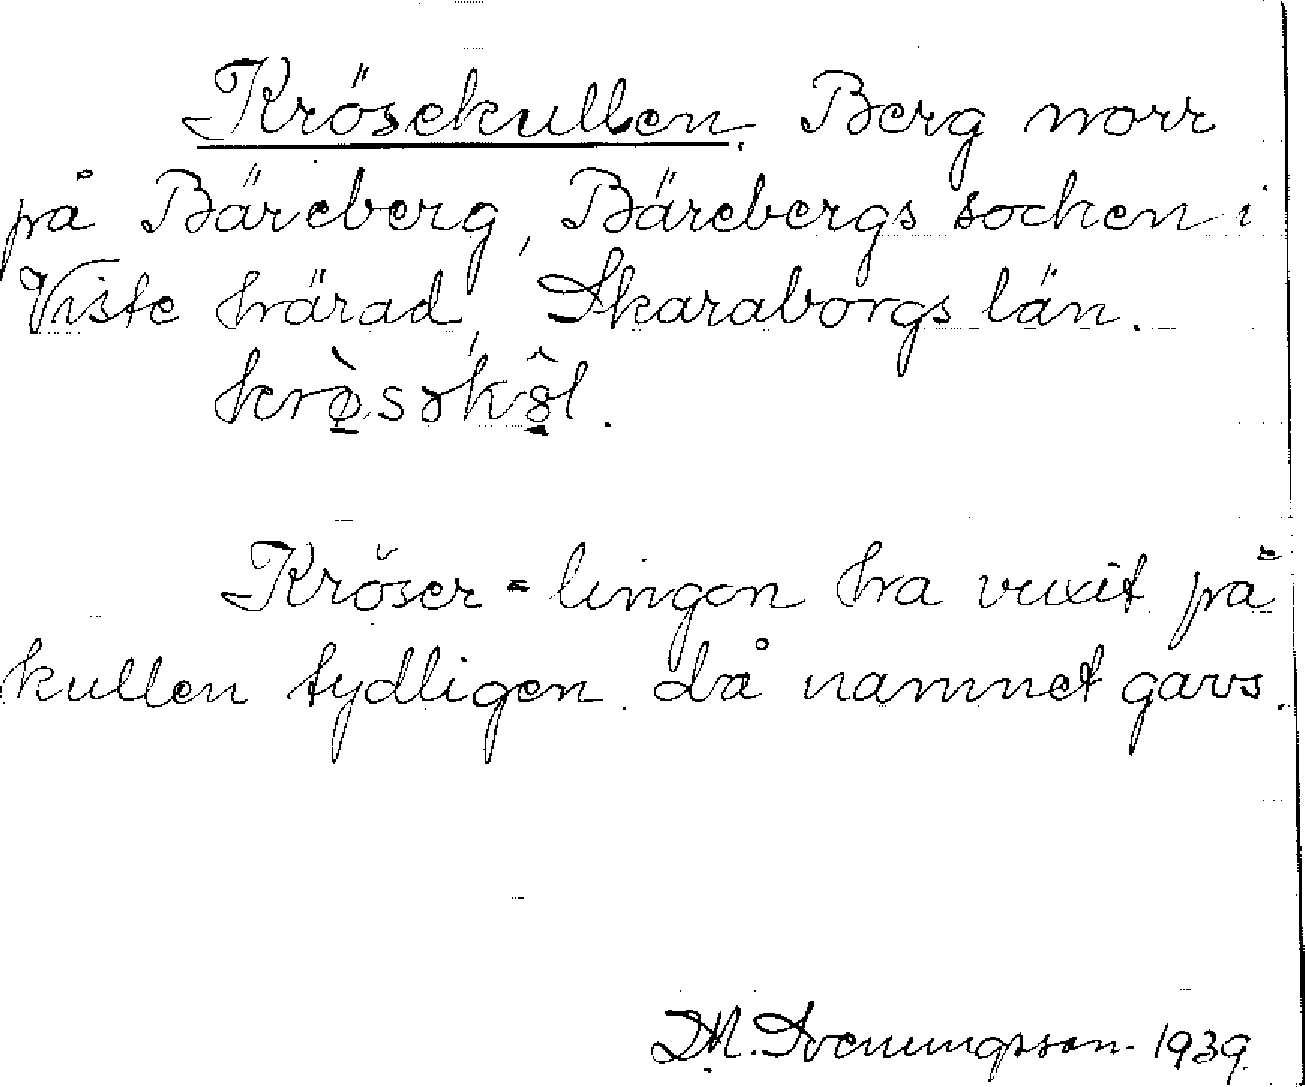 Krösekullen. Berg norr
på Bäreberg, Bärebergs socken i
Viste härad, Skaraborgs län.

Kröser = lingon ha vuxit på
kullen tydligen då namnet gavs.
M. Svenungsson 1939.